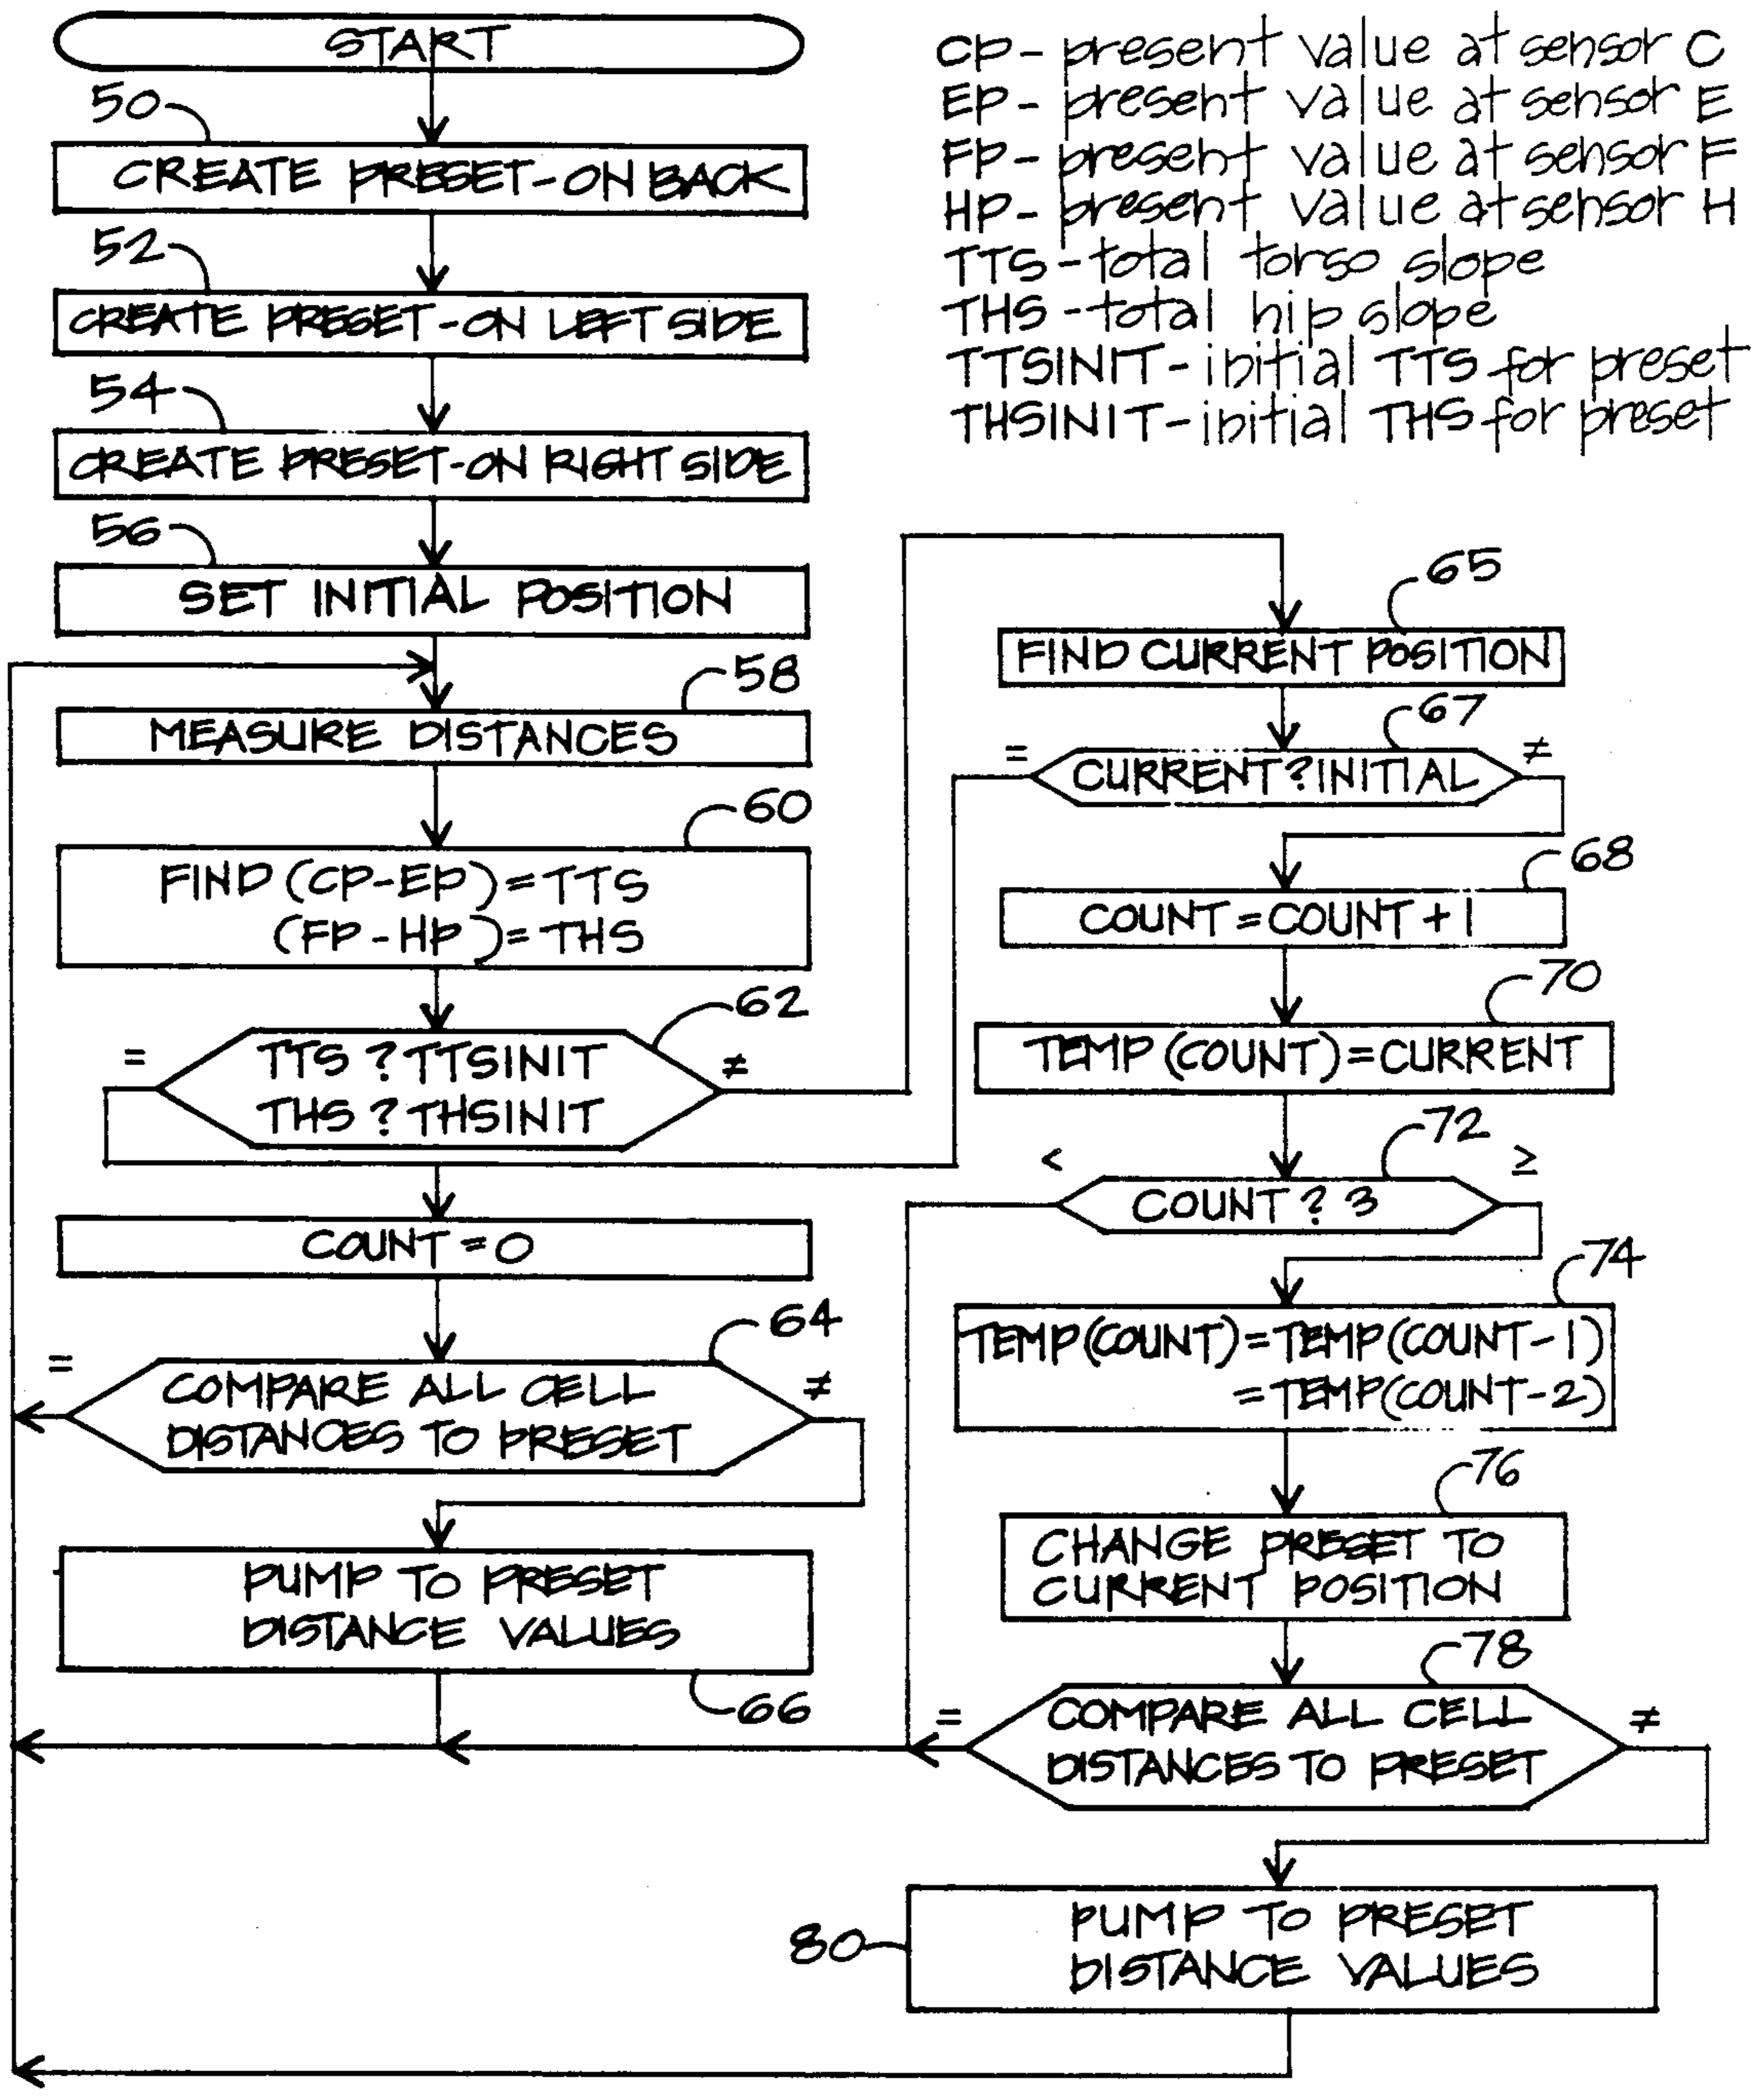 START
50
CREATE PRESET-ON BACK
52
CREATE PRESET-ON LEFT SIDE
54
CREATE PRESET-ON RIGHT SIDE
56
SET INITIAL POSITION
58
MEASURE DISTANCES
60
FIND (CP-EP)=TTS
(FP-HP)=THS
62
= ≠
TTS ? TTSINIT
THS ? THSINIT
COUNT = 0
64
= ≠
COMPARE ALL CELL
DISTANCES TO PRESET
PUMP TO PRESET
DISTANCE VALUES
66
CP- present value at sensor C
EP- present value at sensor E
FP- present value at sensor F
HP- present value at sensor H
TTS-total torso slope
THS-total hip slope
TTSINIT-initial TTS for preset
THSINIT-initial THS for preset
65
FIND CURRENT POSITION
67
= ≠
CURRENT?INITIAL
68
COUNT=COUNT+1
70
TEMP(COUNT)=CURRENT
72
< ≥
COUNT ? 3
74
TEMP(COUNT)=TEMP(COUNT-1)
=TEMP(COUNT-2)
76
CHANGE PRESET TO
CURRENT POSITION
78
= ≠
COMPARE ALL CELL
DISTANCES TO PRESET
80
PUMP TO PRESET
DISTANCE VALUES